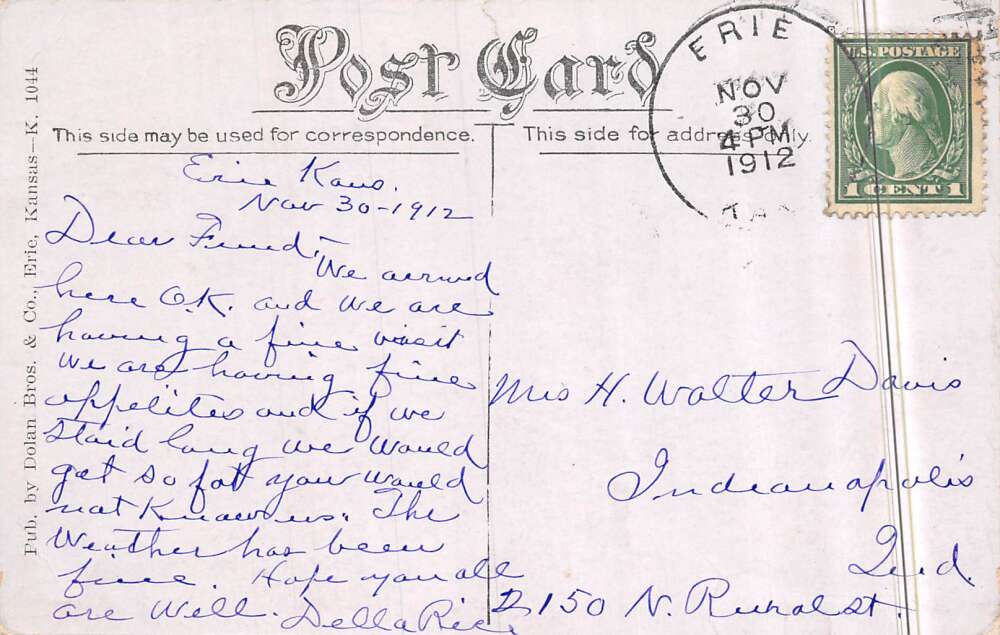 Post Card
This side may be used for correspondence.
This side for address only.
Pub. by Dolan Bros. & Co., Erie, Kansas—K. 1044
ERIE
NOV
30
4 PM
1912
U.S. POSTAGE
1 CENT 1
Erie Kans.
Nov 30-1912
Dear Friend,
We arrived
here O.K. and we are
having a fine visit
we are having fine
appetites and if we
staid long we would
get so fat you would
not know us. The
Weather has been
fine. Hope you all
are well. Della Rice
Mrs H. Walter Davis
Indianapolis
Ind.
2150 N. Rural st.